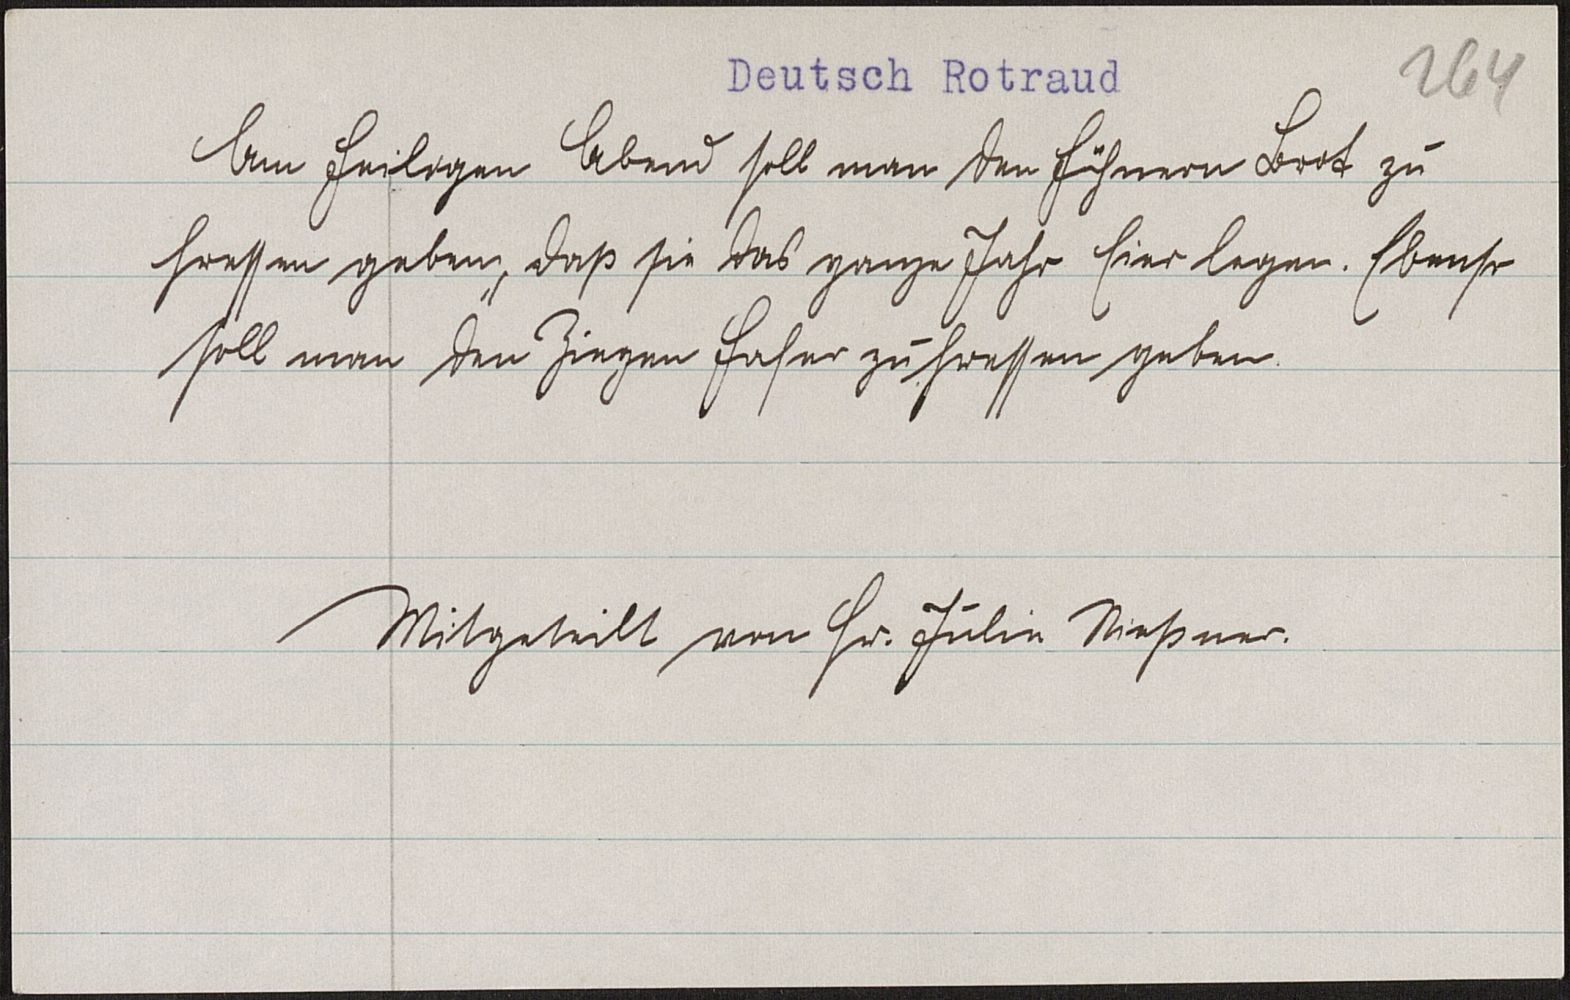 Deutsch Rotraud
264
Am heiligen Abend soll man den Hühnern Brot zu
fressen geben, daß sie das ganze Jahr Eier legen. Ebenso
soll man den Ziegen Hafer zu fressen geben.
Mitgeteilt von Fr. Julie Meßner.